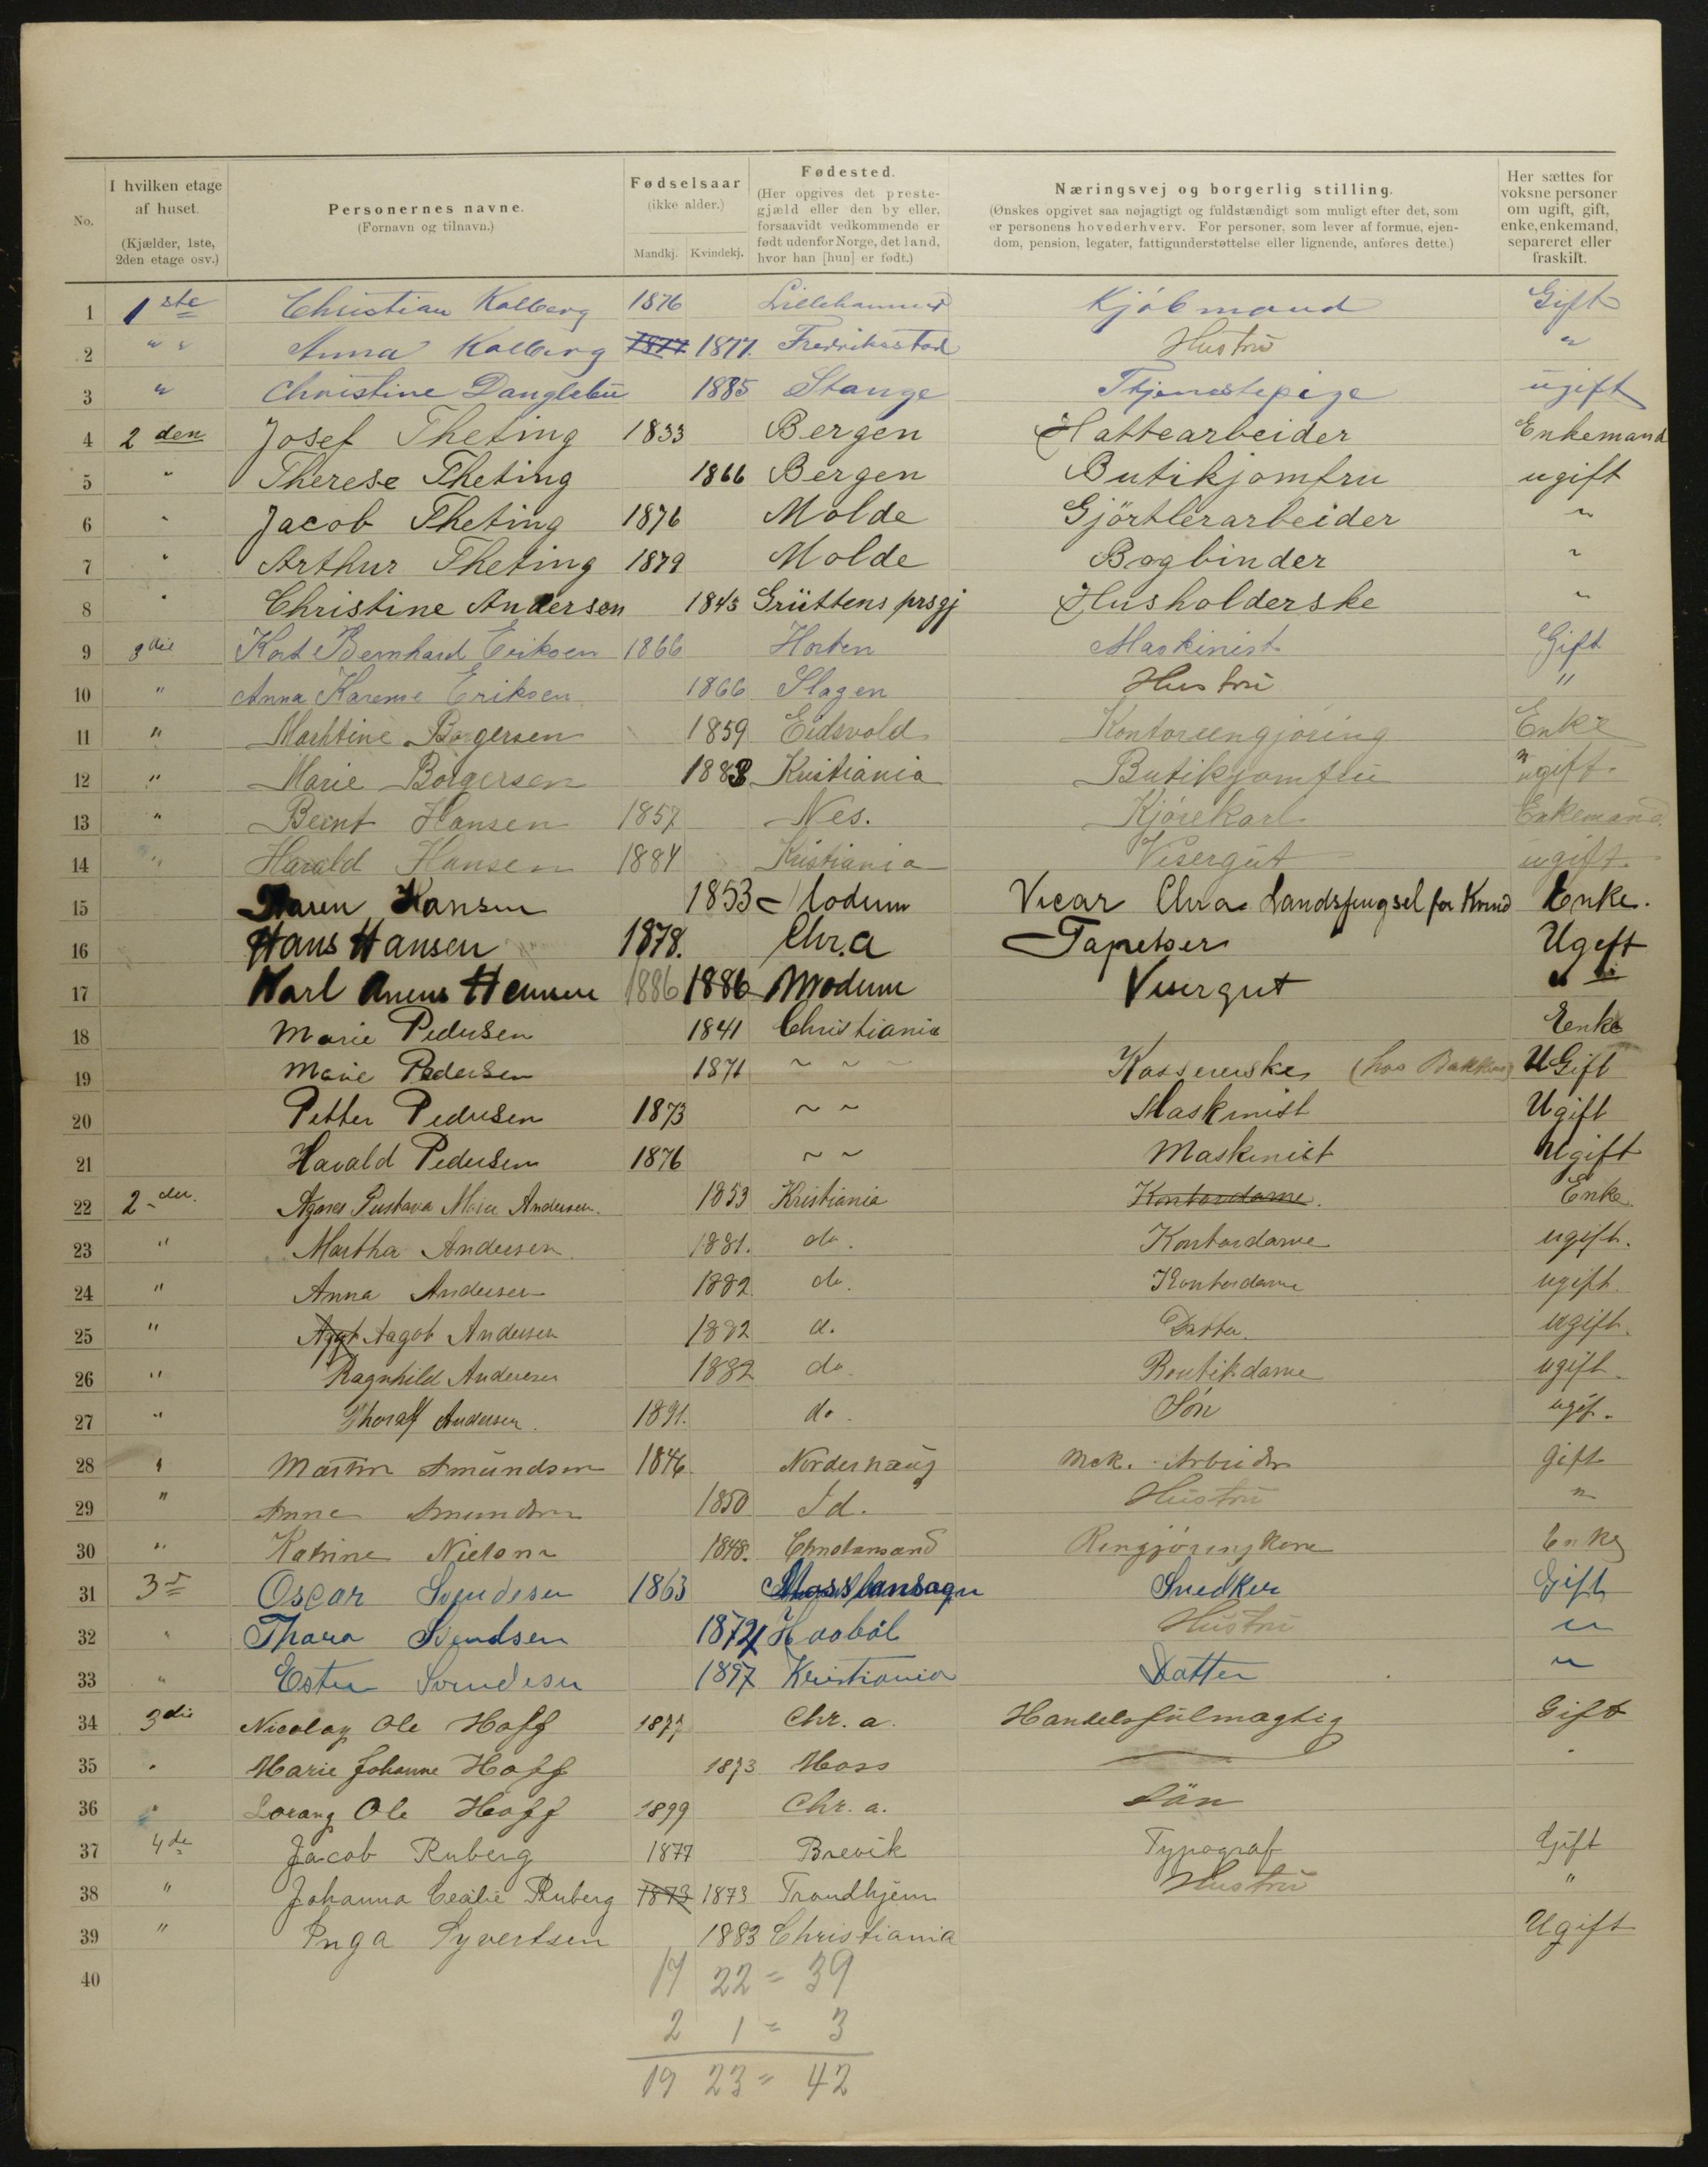 No.
I hvilken etage af huset. (Kjælder, 1ste, 2den etage osv.)
Personernes navne. (Fornavn og tilnavn.)
Fødselsaar (ikke alder.)
Mandkj. Kvindekj.
Fødested. (Her opgives det prestegjæld eller den by eller, forsaavidt vedkommende er født udenfor Norge, det land, hvor han [hun] er født.)
Næringsvej og borgerlig stilling. (Ønskes opgivet saa nøjagtigt og fuldstændigt som muligt efter det, som er personens hovederhverv. For personer, som lever af formue, ejendom, pension, legater, fattigunderstøttelse eller lignende, anføres dette.)
Her sættes for voksne personer om ugift, gift, enke, enkemand, separeret eller fraskilt.
1 1ste Christian Kolberg 1876 Lillehammer Kjöbmand Gift
2 " " Anna Kolberg 1877 1877. Fredriksstad Hustru "
3 " Christine Danglebu 1885 Stange Tjenestepige ugift
4 2den Josef Theting 1833 Bergen Hattearbeider Enkemand
5 " Therese Theting 1866 Bergen Butikjomfru ugift
6 " Jacob Theting 1876 Molde Gjörtlerarbeider "
7 " Arthur Theting 1879 Molde Bogbinder "
8 " Christine Andersen 1843 Grüttens prsgj Husholderske "
9 3die Karl Bernhard Eriksen 1866 Horten Maskinist Gift
10 " Anna Karense Eriksen 1866 Slagen Hustru "
11 " Marthine Borgersen 1859 Eidsvold Kontorrengjøring Enke
12 " Marie Borgersen 1888 Kristiania Butikjomfru ugift
13 " Bernt Hansen 1857 Nes. Kjørekarl Enkemand.
14 " Harald Hansen 1884 Kristiania Visergut ugift
15 Karen Hansen 1853 Modum Chra Landsfengsel for Enke.
16 Hans Hansen 1878. Chr.a Tapetser Ugift
17 Karl 1886 1886 Modum Visergut "
18 Marie Pedersen 1841 Christiania Enke
19 Marie Pedersen 1871 ~ ~ ~ Kassererske (hos Bakken) UGift
20 Petter Pedersen 1873 ~ ~ Maskinist Ugift
21 Harald Pedersen 1876 ~ ~ Maskinist Ugift
22 2den. Agnes Gustava Marie Andersen. 1853 Kristiania Kontordame. Enke
23 " Martha Andersen 1881. do. Kontordame ugift.
24 " Anna Andersen 1882 do. Kontordame ugift.
25 " Aagot Andersen 1882 d. Datter. ugift.
26 " Ragnhild Andersen 1882 do Boutikdame ugift.
27 " Thoralf Andersen. 1891. do. Søn ugif.
28 " Martin Amundsen 1846. Nordernaug Mek. Arbeider gift
29 " Anne Amundsen 1850 Id. Hustru "
30 " Katrine Nielsen 1848. Christiansand Rengjøringskone Enke
31 3d Oscar Svendsen 1863 Snedker Gift
32 " Thora Svendsen 1872 Haabøl Hustru "
33 " Ester Svendsen 1897 Kristiania Datter "
34 3die Nicolay Ole Hoff 1877 Chr.a. Handelsfulmægtig Gift
35 " Marie Johanne Hoff 1873 Moss "
36 " Lorang Ole Hoff 1899 Chr.a. Sön
37 4de Jacob Ruberg 1877 Brevik Typograf Gift
38 " Johanna Cecilie Ruberg 1873 1873 Trondhjem Hustru "
39 " Inga Syvertsen 1883 Christiania Ugift
40
17 22 = 39
2 1 = 3
19 23 = 42